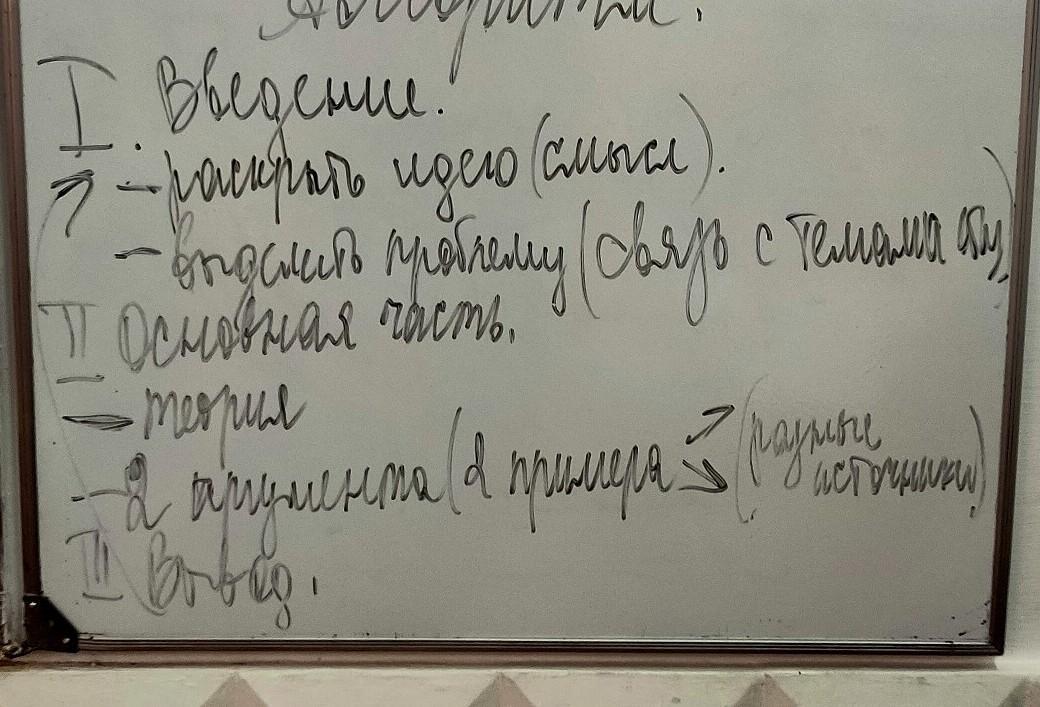 Алгоритм.
I. Введение.
- раскрыть идею (смысл).
- выделить проблему (связь с тематикой)
II Основная часть.
- теория
- 2 аргумента (2 примера (разные
источники)
III Вывод.